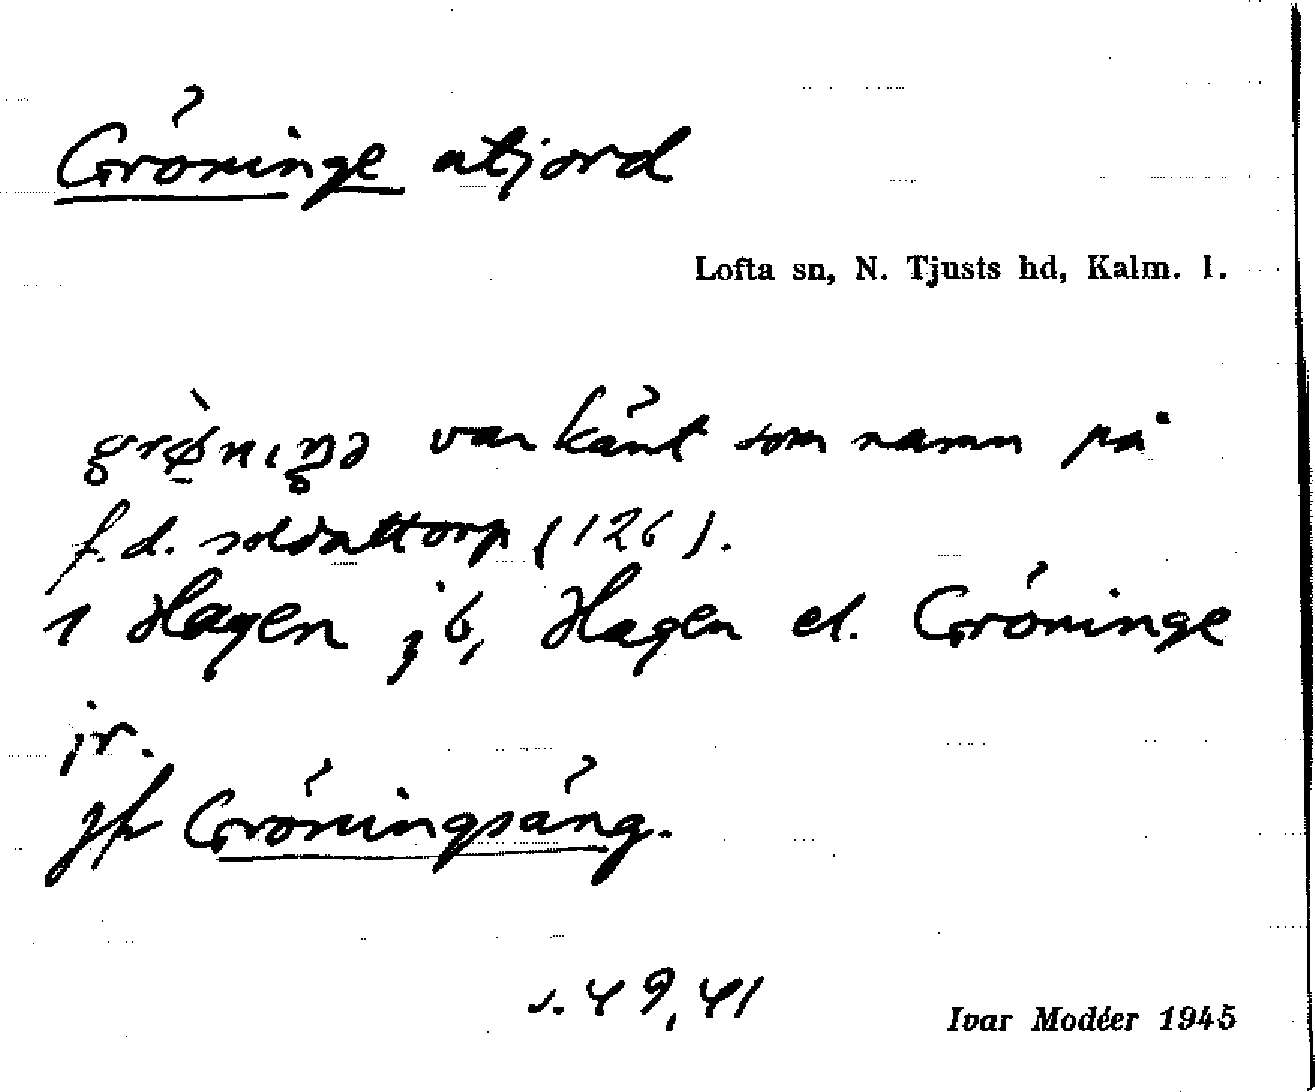 Gröninge utjord
Lofta sn, N. Tjusts hd, Kalm. l.
grø̀niŋə var känt som namn på
f.d. soldattorp (126).
1 Hagen jb, Hagen el. Gröninge
jr.
Jfr Gröningsäng.
s. 49, 41
Ivar Modéer 1945